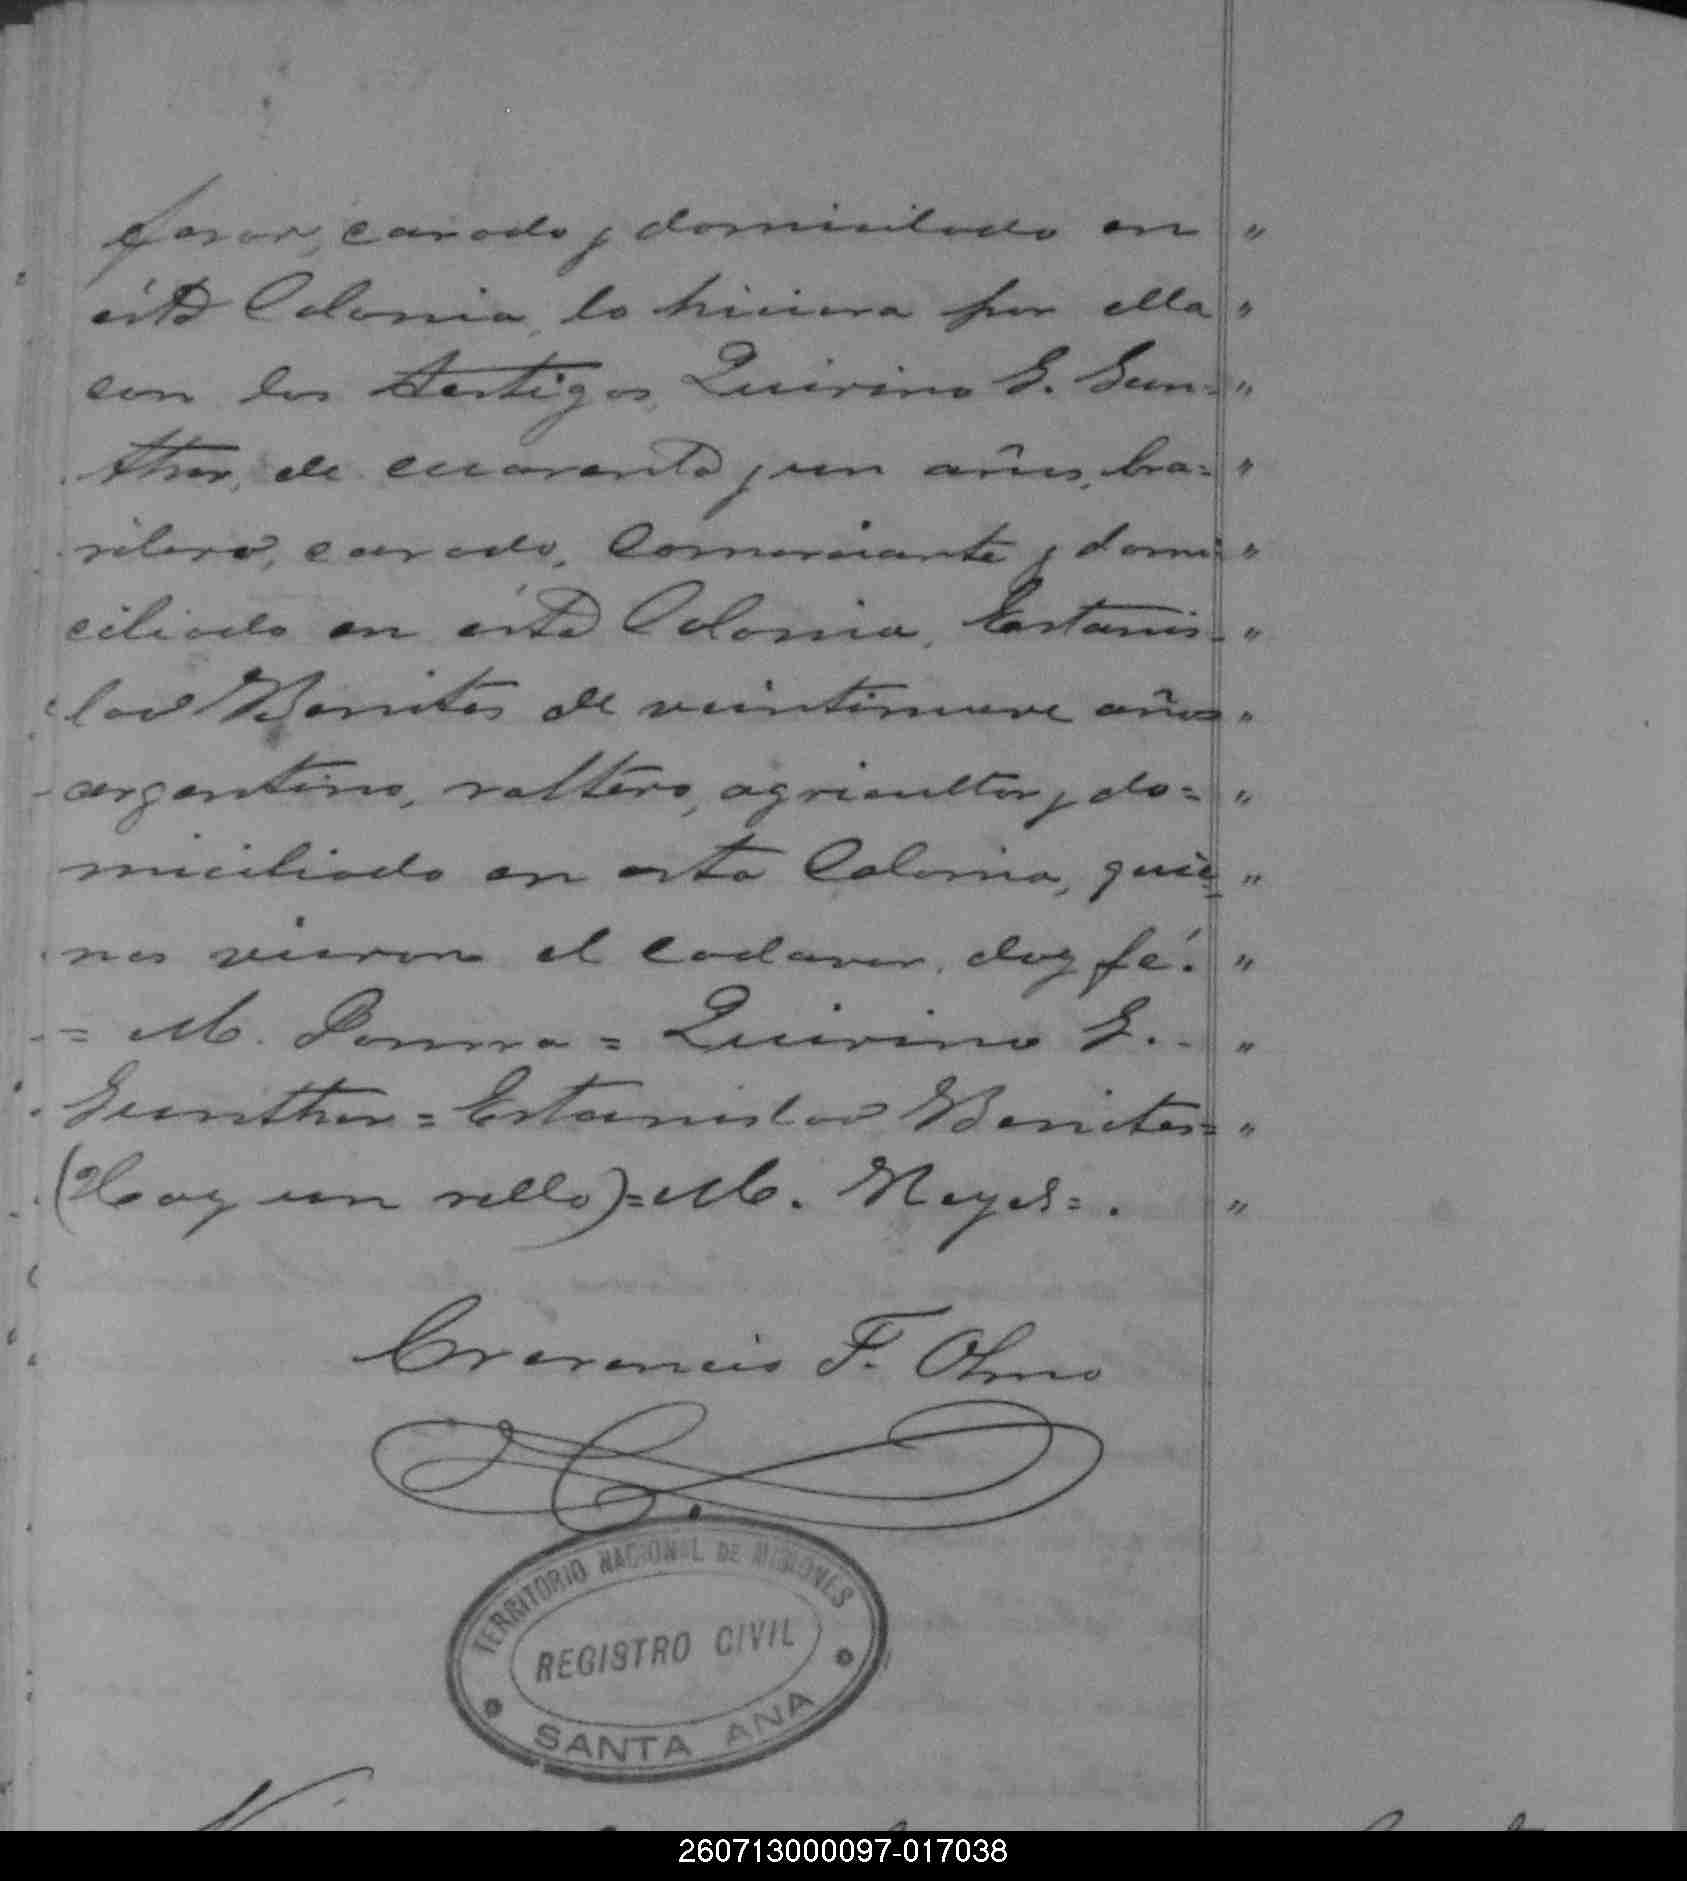 fesor, casado y domiciliado en "
ésta Colonia, lo hiciera por ella "
con los testigos Quirino G. Gun= "
ther, de cuarenta y un años, bra= "
silero, casado, Comerciante y domi "
ciliado en ésta Colonia, Estanis= "
lao Benites de veintinueve años "
argentino, soltero, agricultor y do= "
miciliado en esta Colonia, quie= "
nes vieron el cadaver, doy fé. "
= M. = Quirino G. "
Gunther = Estanislao Benites= "
(Hay un sello)=M. Reyes=. "
F. Olmo
TERRITORIO NACIONAL DE MISIONES
REGISTRO CIVIL
SANTA ANA
260713000097-017038